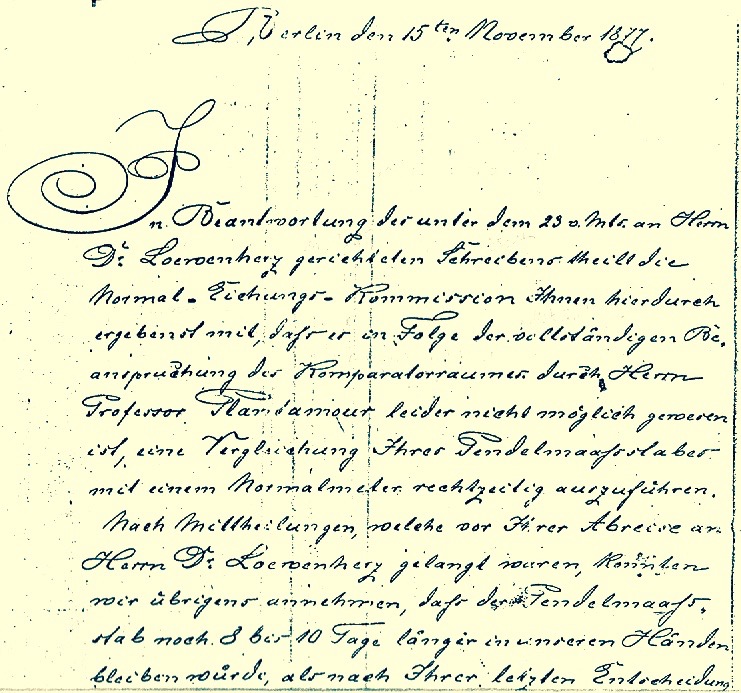 Berlin den 15ten November 1877.
In Beantwortung des unter dem 23 v. Mts. an Herrn
Dr. Loewenherz gerichteten Schreibens theilt die
Normal-Eichungs-Kommission Ihnen hierdurch
ergebenst mit, dafs es in Folge der vollständigen Be-
anspruchung des Komparatorraumes durch Herrn
Professor Plantamour leider nicht möglich gewesen
ist, eine Vergleichung Ihres Pendelmaafsstabes
mit einem Normalmeter rechtzeitig auszuführen.
Nach Mittheilungen, welche vor Ihrer Abreise an
Herrn Dr. Loewenherz gelangt waren, konnten
wir übrigens annehmen, dafs der Pendelmaafs-
stab noch 8 bis 10 Tage länger in unseren Händen
bleiben würde, als nach Ihrer letzten Entscheidung